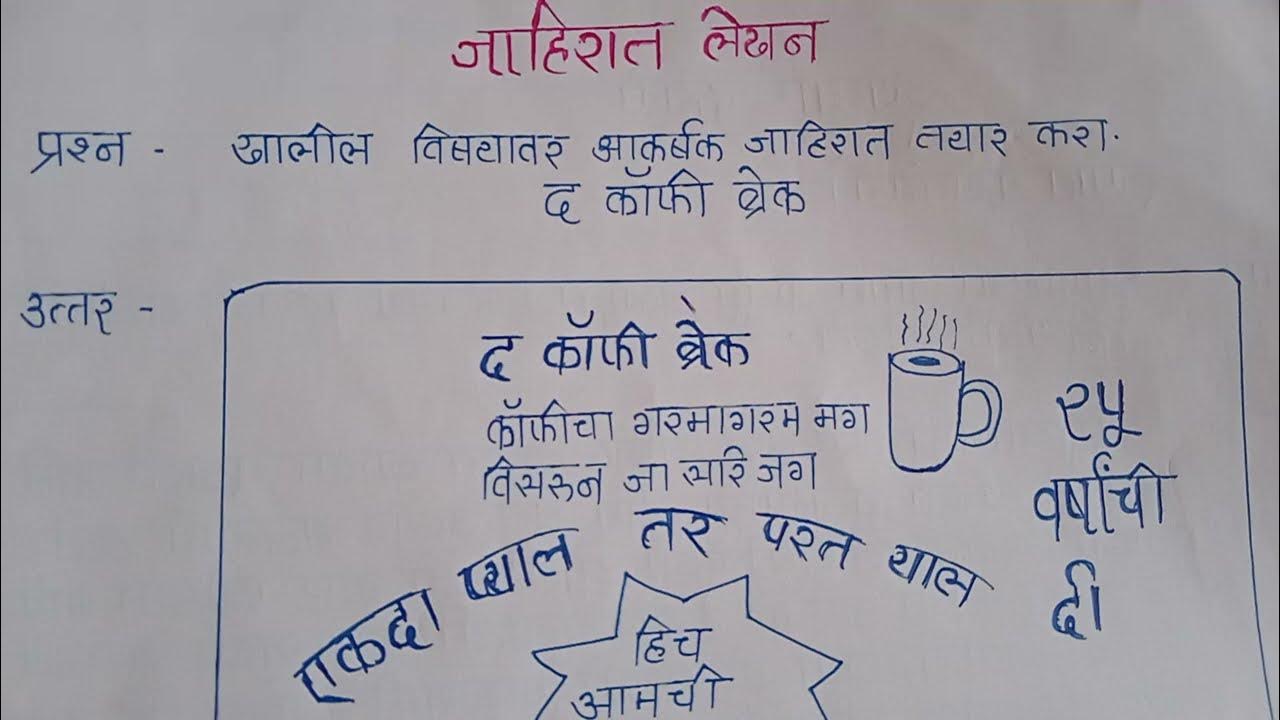 जाहिरात लेखन
प्रश्न - खालील विषयावर आकर्षक जाहिरात तयार करा.
द कॉफी ब्रेक
उत्तर -
द कॉफी ब्रेक
कॉफीचा गरमागरम मग
विसरुन जा सारे जग
एकदा प्याल तर परत याल
२५
वर्षांची
हिच
आमची